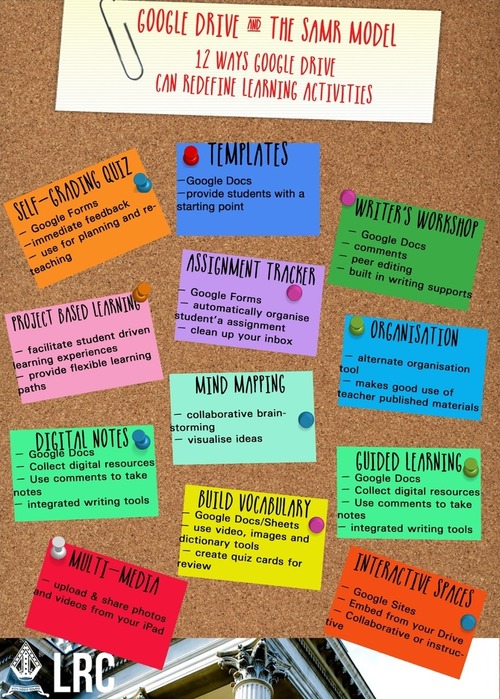 GOOGLE DRIVE AND THE SAMR MODEL
12 WAYS GOOGLE DRIVE
CAN REDEFINE LEARNING ACTIVITIES
SELF-GRADING QUIZ
- Google Forms
-immediate feedback
- use for planning and re-
teaching
TEMPLATES
-Google Docs
-provide students with a
starting point
WRITER'S WORKSHOP
- Google Docs
- comments
- peer editing
- built in writing supports
ASSIGNMENT TRACKER
- Google Forms
- automatically organise
student'a assignment
- clean up your inbox
PROJECT BASED LEARNING
- facilitate student driven
learning experiences
- provide flexible learning
paths
ORGANISATION
- alternate organisation
tool
- makes good use of
teacher published materials
MIND MAPPING
- collaborative brain-
storming
- visualise ideas
DIGITAL NOTES
- Google Docs
- Collect digital resources
- Use comments to take
notes
- integrated writing tools
GUIDED LEARNING
- Google Docs
- Collect digital resources
- Use comments to take
notes
- integrated writing tools
BUILD VOCABULARY
- Google Docs/Sheets
- use video, images and
dictionary tools
- create quiz cards for
review
MULTI-MEDIA
- upload & share photos
and videos from your iPad
INTERACTIVE SPACES
- Google Sites
- Embed from your Drive
- Collaborative or instruc-
tive
LRC